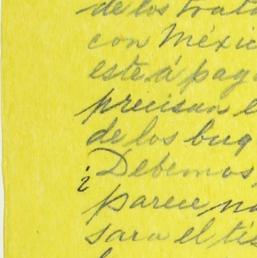 de los trata
con Méxic
este á pag
precisan e
de los buq
¿Debemos,
parece no
sara el tés